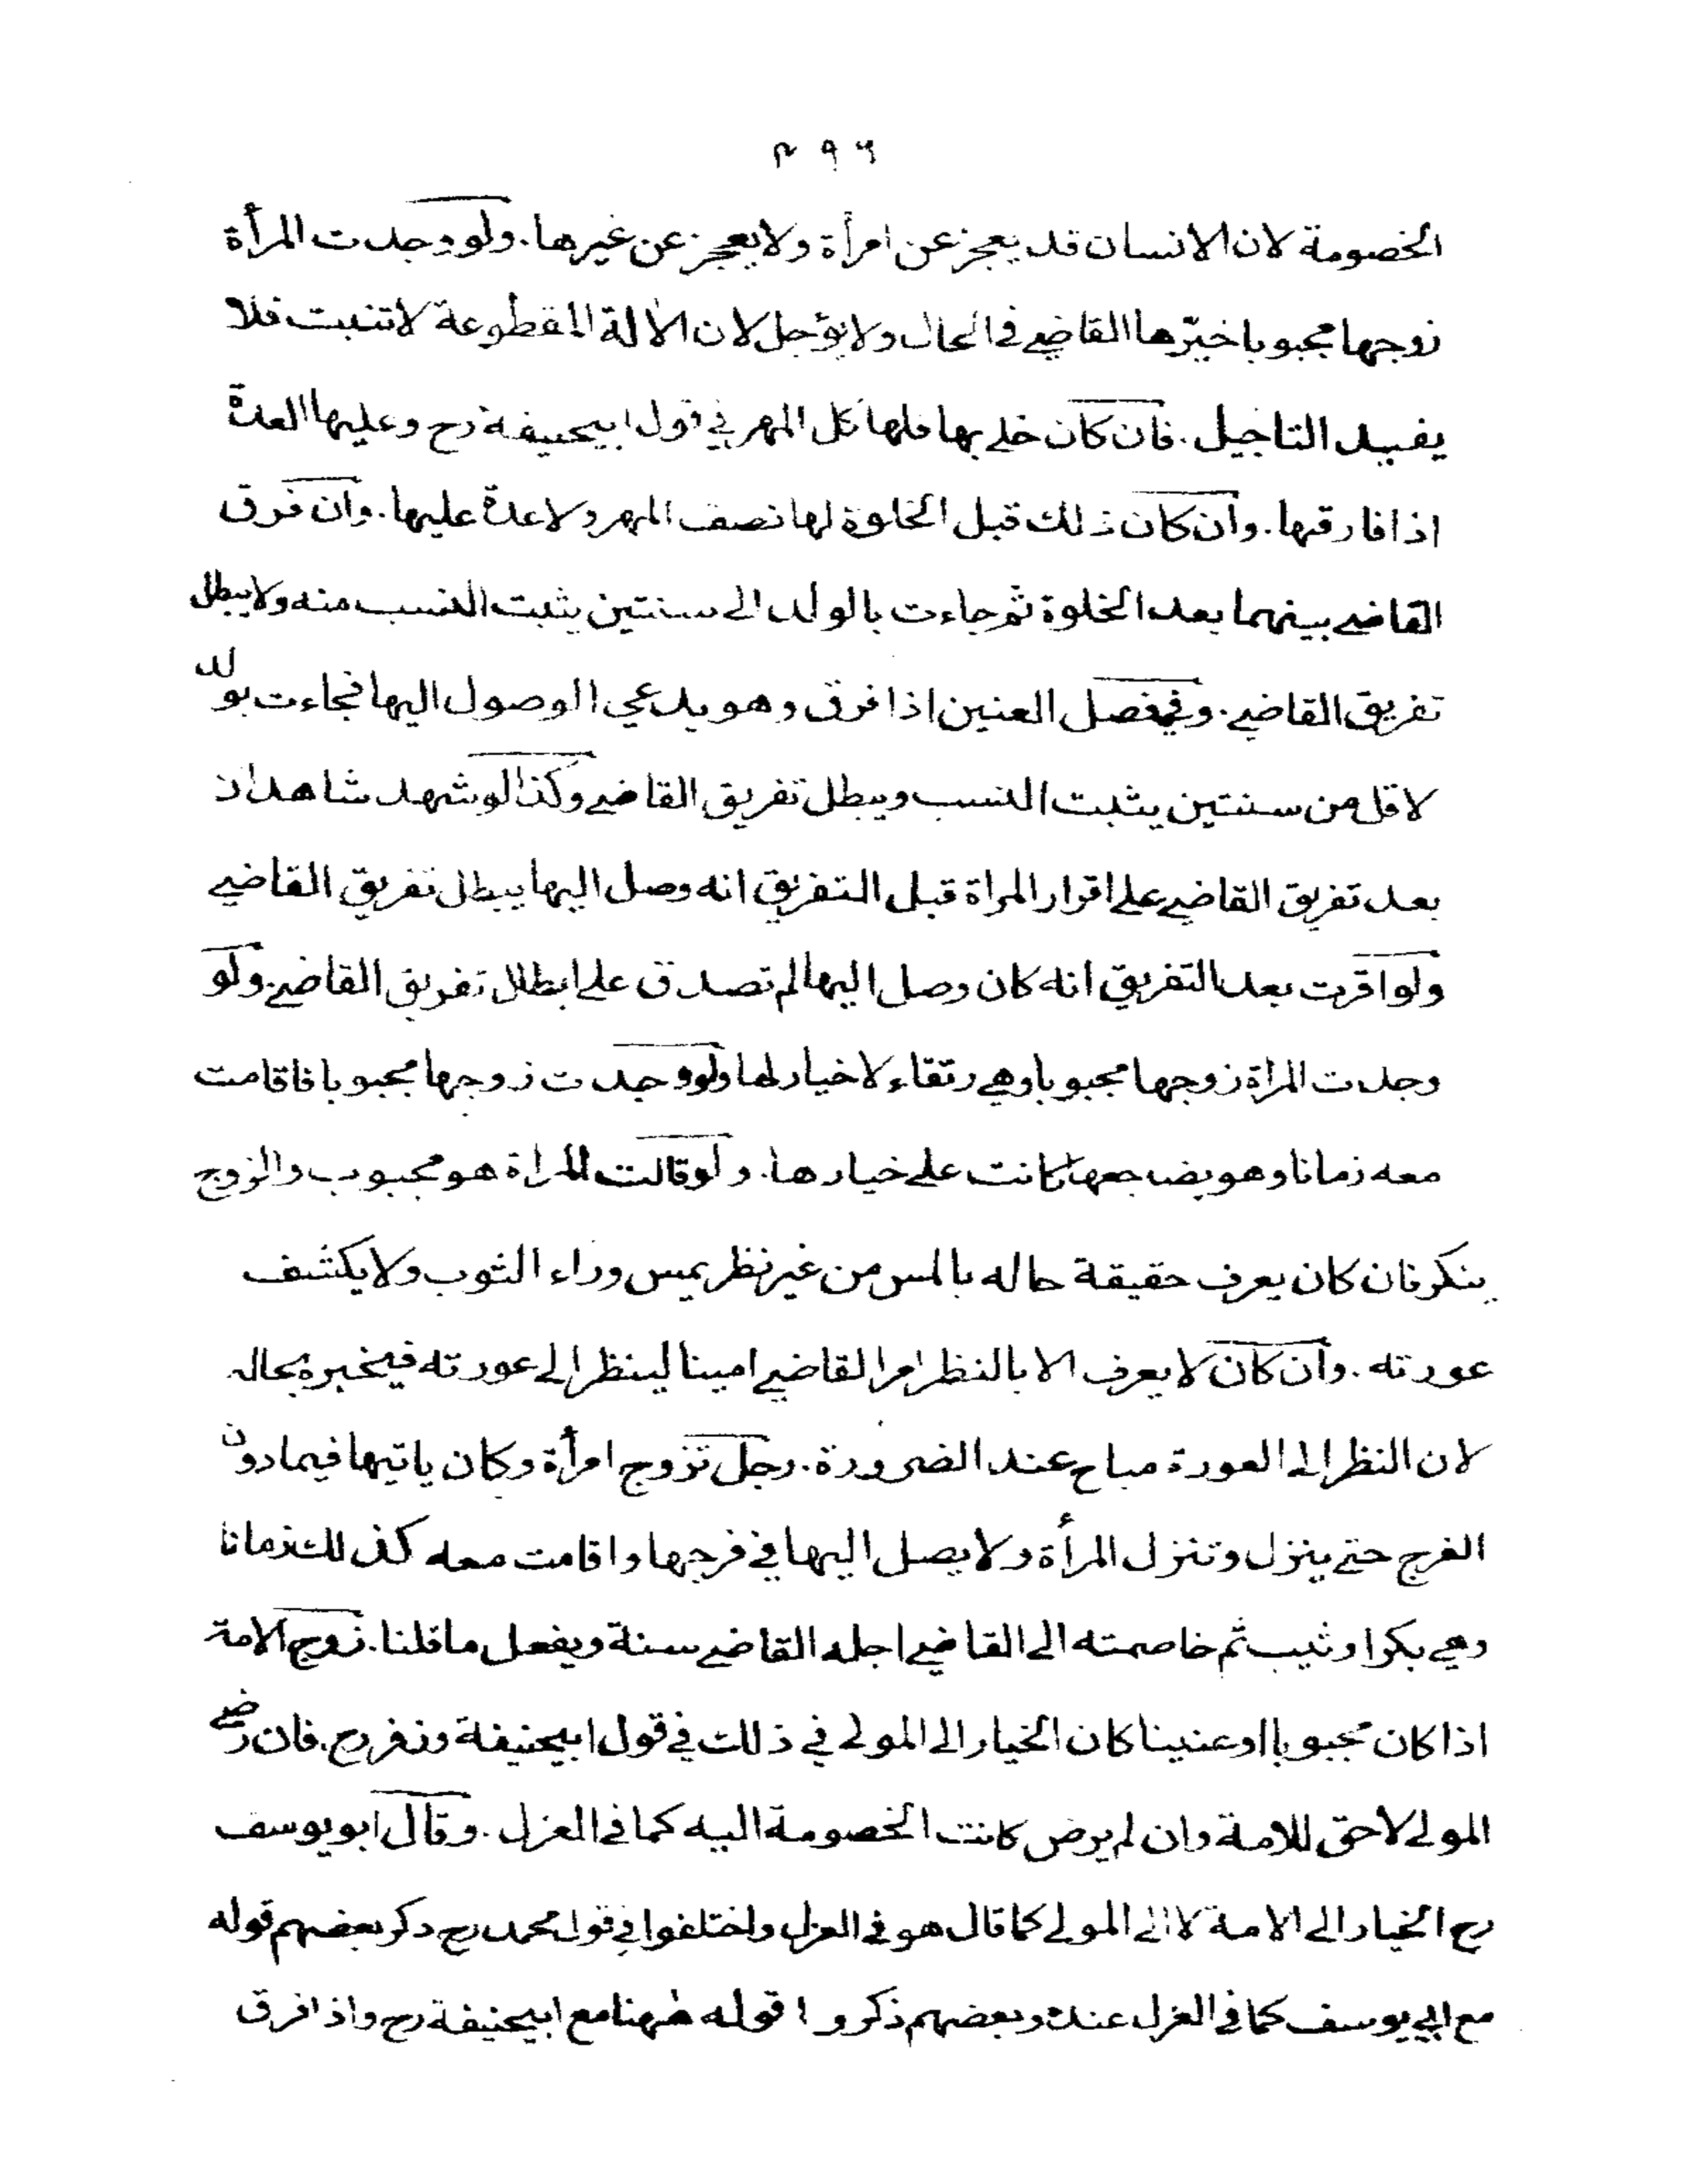 ٤٩٦
الخصومة لان الانسان قد يعجز عن امرأة ولا يعجز عن غيرها. ولو وجدت المرأة
زوجها مجبوبا خيّرها القاضي في الحال ولا يؤجل لان الالة المقطوعة لا تنبت فلا
يفيد التاجيل. فان كان خلي بها فلها كل المهر في قول ابيحنيفة رح وعليها العدة
اذا فارقها. وان كان ذلك قبل الخلوة لها نصف المهر ولا عدة عليها. وان فرق
القاضي بينهما بعد الخلوة ثم جاءت بالولد الى سنتين يثبت النسب منه ولا يبطل
تفريق القاضي. وفي فصل العنين اذا فرق وهو يدعي الوصول اليها فجاءت بولد
لاقل من سنتين يثبت النسب ويبطل تفريق القاضي وكذا لو شهد شاهدان
بعد تفريق القاضي على اقرار المراة قبل التفريق انه وصل اليها يبطل تفريق القاضي
ولو اقرت بعد التفريق انه كان وصل اليها لم تصدق على ابطال تفريق القاضي ولو
وجدت المراة زوجها مجبوبا وهي رتقاء لا خيار لها ولو وجدت زوجها مجبوبا فاقامت
معه زمانا وهو يضاجعها كانت على خيارها. ولو قالت المراة هو مجبوب والزوج
ينكر فان كان يعرف حقيقة حاله بالمس من غير نظر يمس وراء الثوب ولا يكشف
عورته. وان كان لا يعرف الا بالنظر امر القاضي امينا لينظر الى عورته فيخبره بحاله
لان النظر الى العورة مباح عند الضرورة. رجل تزوج امرأة وكان ياتيها فيما دون
الفرج حتى ينزل وتنزل المرأة ولا يصل اليها في فرجها واقامت معه كذلك زمانا
وهي بكر او ثيب ثم خاصمته الى القاضي اجله القاضي سنة ويفعل ما قلنا. زوج الامة
اذا كان مجبوبا او عنينا كان الخيار الى المولى في ذلك في قول ابيحنيفة وزفر رح. فان رضي
المولى لا حق للامة وان لم يرض كانت الخصومة اليه كما في العزل. وقال ابو يوسف
رح الخيار الى الامة لا الى المولى كما قال هو في العزل واختلفوا في قول محمد رح ذكر بعضهم قوله
مع ابي يوسف كما في العزل عنده وبعضهم ذكروا قوله ههنا مع ابيحنيفة رح واذا فرق